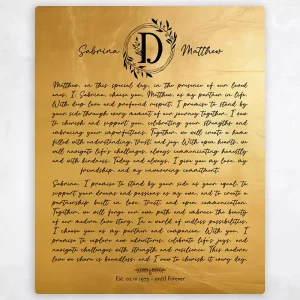 D
Sabrina Matthew
Matthew, on this special day, in the presence of our loved
ones, I, Sabrina, choose you, Matthew, as my partner in life.
With deep love and profound respect, I promise to stand by
your side through every moment of our journey together. I vow
to cherish and support you, celebrating your strengths and
embracing your imperfections. Together, we will create a home
filled with understanding, trust, and joy. With open hearts, we
will navigate life's challenges, always communicating honestly
and with kindness. Today and always, I give you my love, my
friendship, and my unwavering commitment.
Sabrina, I promise to stand by your side as your equal, to
support your dreams and passions as my own, and to create a
partnership built on love, trust, and open communication.
Together, we will forge our own path and embrace the beauty
of our modern love story. In a world of endless possibilities,
I choose you as my partner and companion. With you, I
promise to explore new adventures, celebrate life's joys, and
navigate challenges with strength and resilience. This modern
love we share is boundless, and I vow to cherish it every day.
Est. 02.10.1973 - until Forever